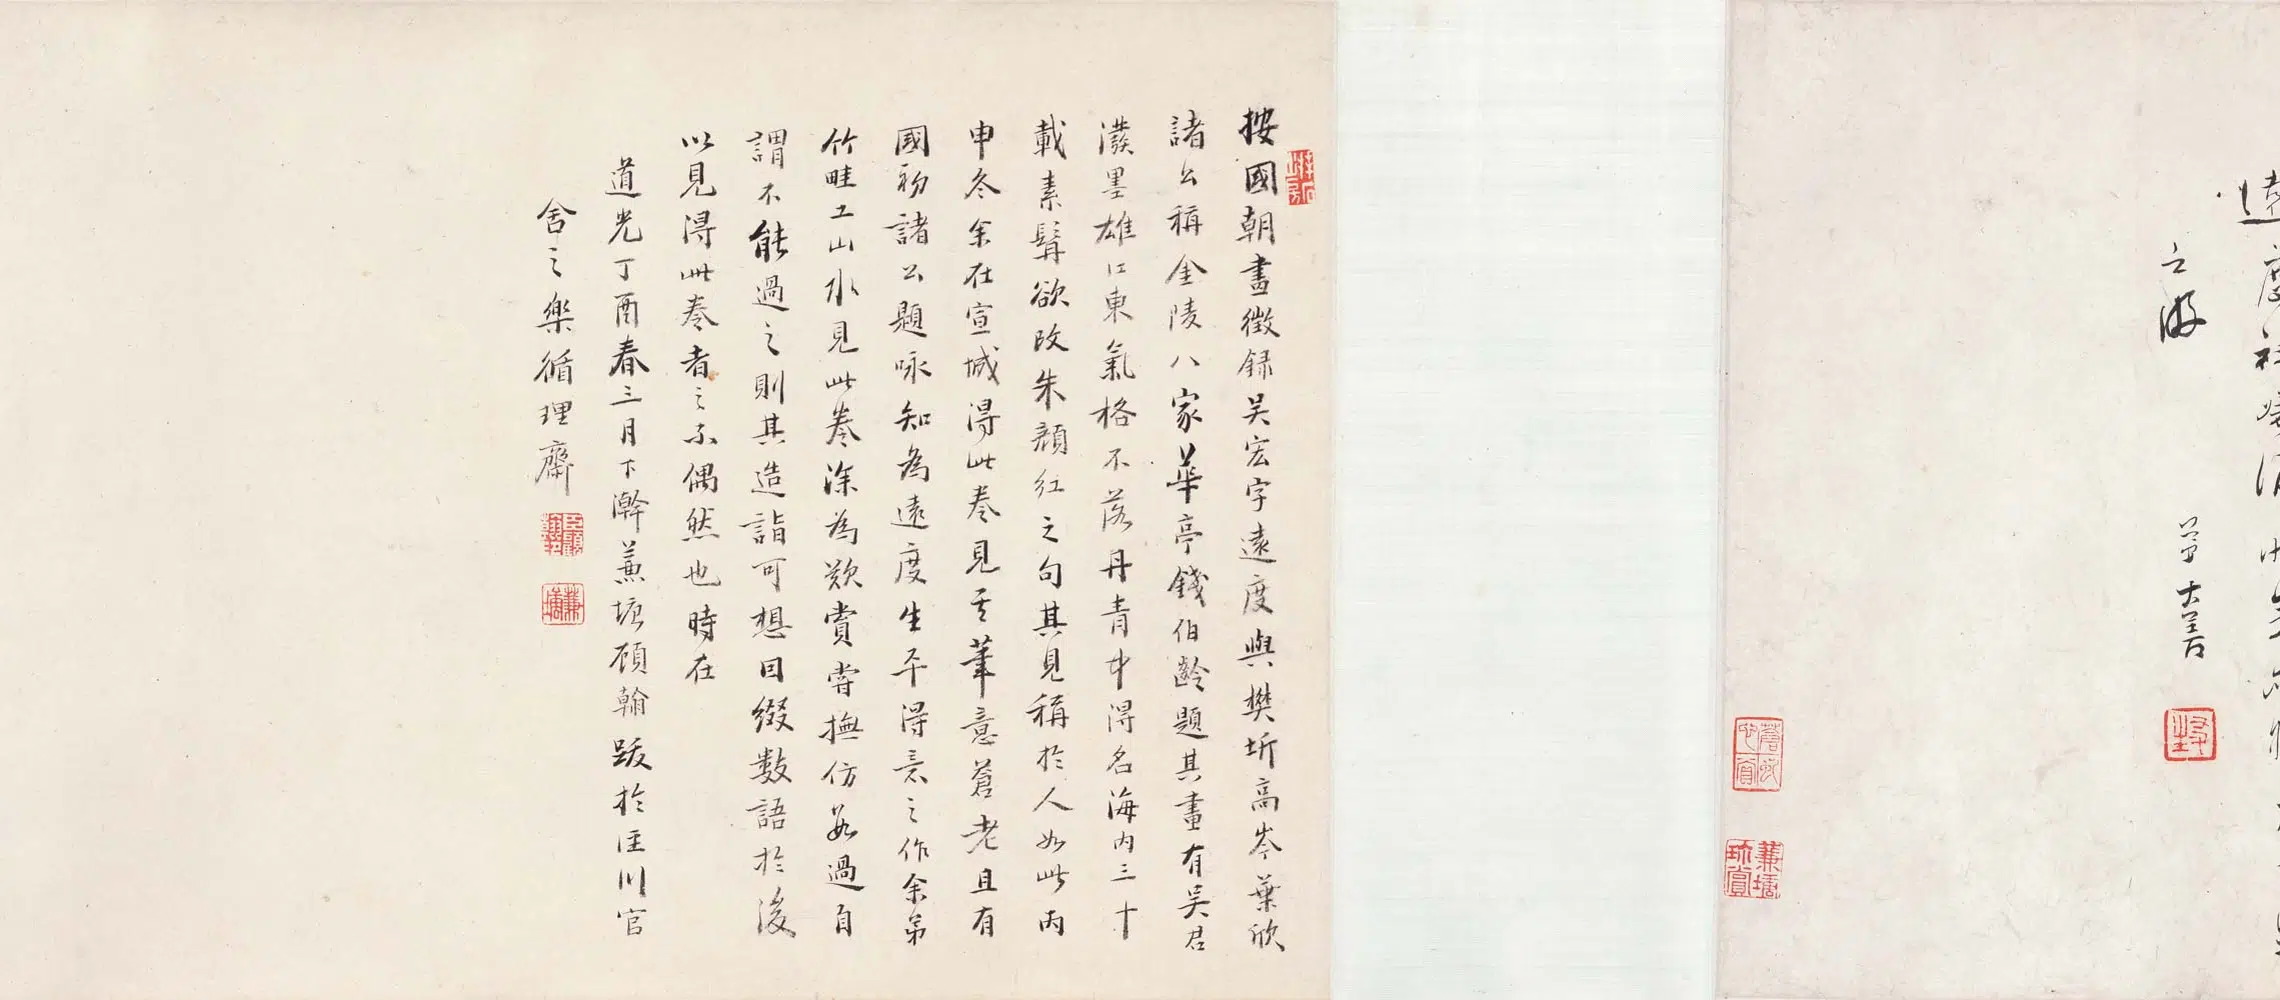 遠度社
之游
弟大善
按國朝畫徵録吴宏字遠度與樊圻高岑葉欣
諸公稱金陵八家華亭錢伯齡題其畫有吴君
潑墨雄江東氣格不落丹青中得名海内三十
載素髯欲改朱顔紅之句其見稱於人如此丙
申冬余在宣城得此卷見其筆意蒼老且有
國初諸公題咏知為遠度生平得意之作余弟
竹畦工山水見此卷深為歎賞嘗撫仿數過自
謂不能過之則其造詣可想因綴數語於後
以見得此卷者之不偶然也時在
道光丁酉春三月下澣蒹塘顧翰跋於涇川官
舍之樂循理齋
蒹塘